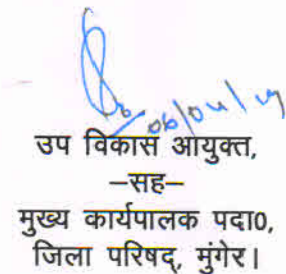 06/04/19
उप विकास आयुक्त,
–सह–
मुख्य कार्यपालक पदा0,
जिला परिषद्, मुंगेर।